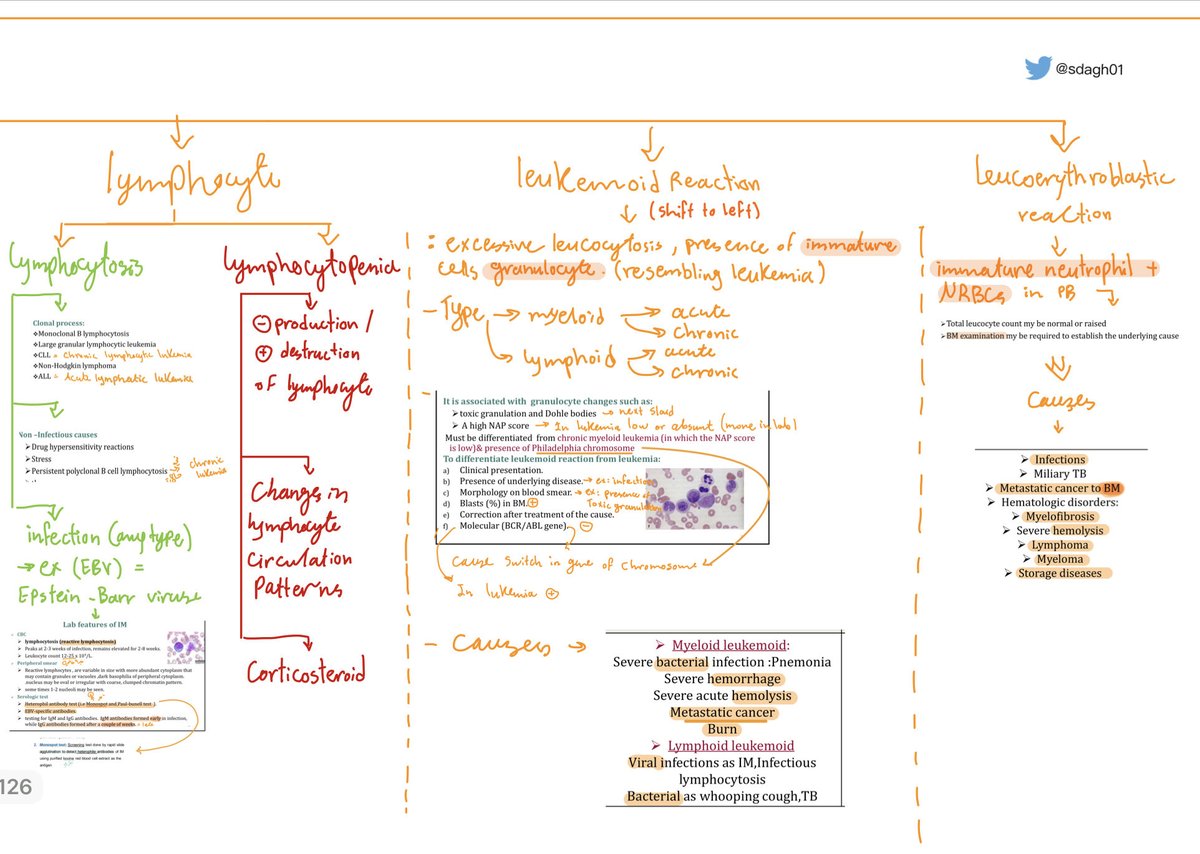 @sdagh01
lymphocyte
lymphocytosis
Clonal process:
❖Monoclonal B lymphocytosis
❖Large granular lymphocytic leukemia
❖CLL = chronic lymphocytic lukemia
❖Non-Hodgkin lymphoma
❖ALL = Acute lymphatic lukemia
Non –Infectious causes
➤Drug hypersensitivity reactions
➤Stress
➤Persistent polyclonal B cell lymphocytosis
chronic
lukemia
infection (any type)
→ ex (EBV) =
Epstein - Barr viruse
Lab features of IM
CBC
➤ lymphocytosis (reactive lymphocytosis)
➤ Peaks at 2-3 weeks of infection, remains elevated for 2-8 weeks.
➤ Leukocyte count 12-25 x 10⁹/L.
Peripheral smear
➤ Reactive lymphocytes, are variable in size with more abundant cytoplasm that
may contain granules or vacuoles ,dark basophilia of peripheral cytoplasm.
.nucleus may be oval or irregular with coarse, clumped chromatin pattern.
➤ some times 1-2 nucleoli may be seen.
Serologic test
➤ Heterophil antibody test (i.e Monospot and Paul-bunell test ).
➤ EBV-specific antibodies.
➤ testing for IgM and IgG antibodies. IgM antibodies formed early in infection,
while IgG antibodies formed after a couple of weeks.
Monospot test: Screening test done by rapid slide
agglutination to detect heterophile antibodies of IM
using purified bovine red blood cell extract as the
antigen
126
lymphocytopenia
⊖ production /
⊕ destruction
of lymphocyte
Changes in
lymphocyte
circulation
Patterns
Corticosteroid
leukemoid Reaction
(shift to left)
: excessive leucocytosis, presence of immature
cells granulocyte. (resembling leukemia)
- Type → myeloid → acute
→ chronic
→ lymphoid → acute
→ chronic
It is associated with granulocyte changes such as:
➤toxic granulation and Dohle bodies → next slaud
➤ A high NAP score → In lukemia low or absunt
Must be differentiated from chronic myeloid leukemia (in which the NAP score
is low)& presence of Philadelphia chromosome
To differentiate leukemoid reaction from leukemia:
a) Clinical presentation.
b) Presence of underlying disease. → ex: infection
c) Morphology on blood smear. → ex: presence of
Toxic granulation
d) Blasts (%) in BM. ⊕
e) Correction after treatment of the cause.
f) Molecular (BCR/ABL gene). ⊖
Cause Switch in gene of chromosome
In lukemia ⊕
- Causes →
➤ Myeloid leukemoid:
Severe bacterial infection :Pnemonia
Severe hemorrhage
Severe acute hemolysis
Metastatic cancer
Burn
➤ Lymphoid leukemoid
Viral infections as IM,Infectious
lymphocytosis
Bacterial as whooping cough,TB
Leucoerythroblastic
reaction
immature neutrophil +
NRBCs in PB
➤Total leucocyte count my be normal or raised
➤BM examination my be required to establish the underlying cause
Causes
➤ Infections
➤ Miliary TB
➤ Metastatic cancer to BM
➤ Hematologic disorders:
➤ Myelofibrosis
➤ Severe hemolysis
➤ Lymphoma
➤ Myeloma
➤ Storage diseases